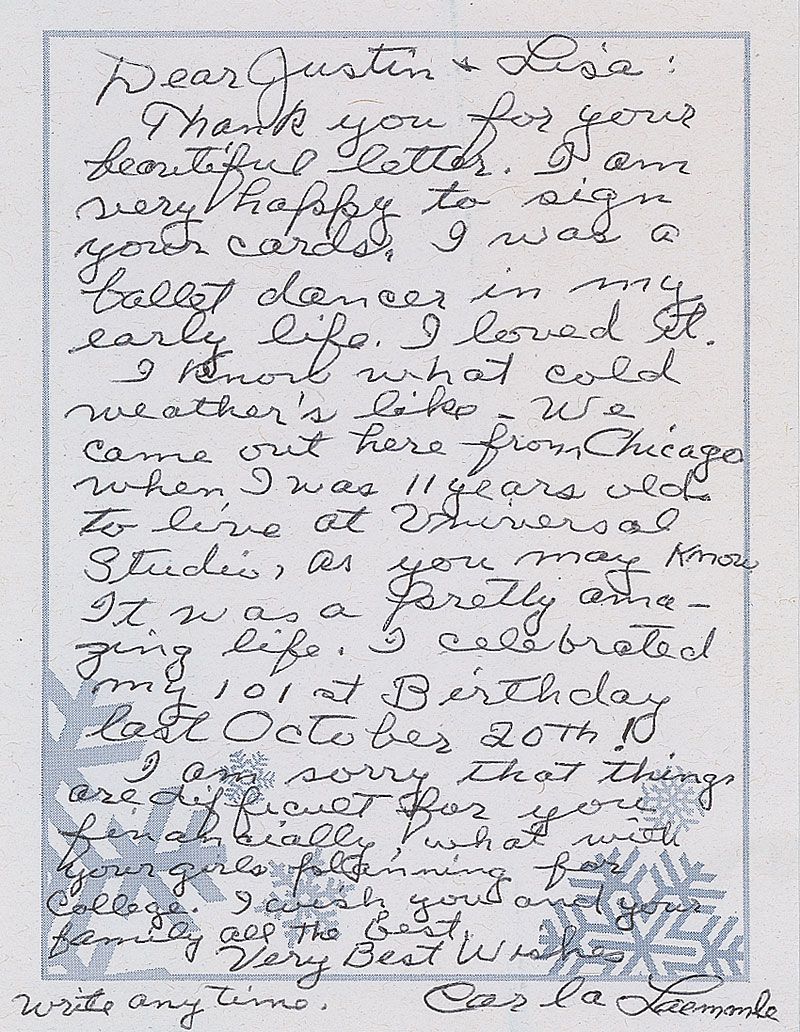 Dear Justin & Lisa:
Thank you for your
beautiful letter. I am
very happy to sign
your cards. I was a
ballet dancer in my
early life. I loved it.
I know what cold
weather's like - We
came out here from Chicago
when I was 11 years old
to live at Universal
Studio, as you may know
It was a pretty ama-
zing life. I celebrated
my 101st Birthday
last October 20th!
I am sorry that things
are difficult for you
financially, what with
your girls planning for
College. I wish you and your
family all the best.
Very Best Wishes
Carla Laemmle
Write any time.